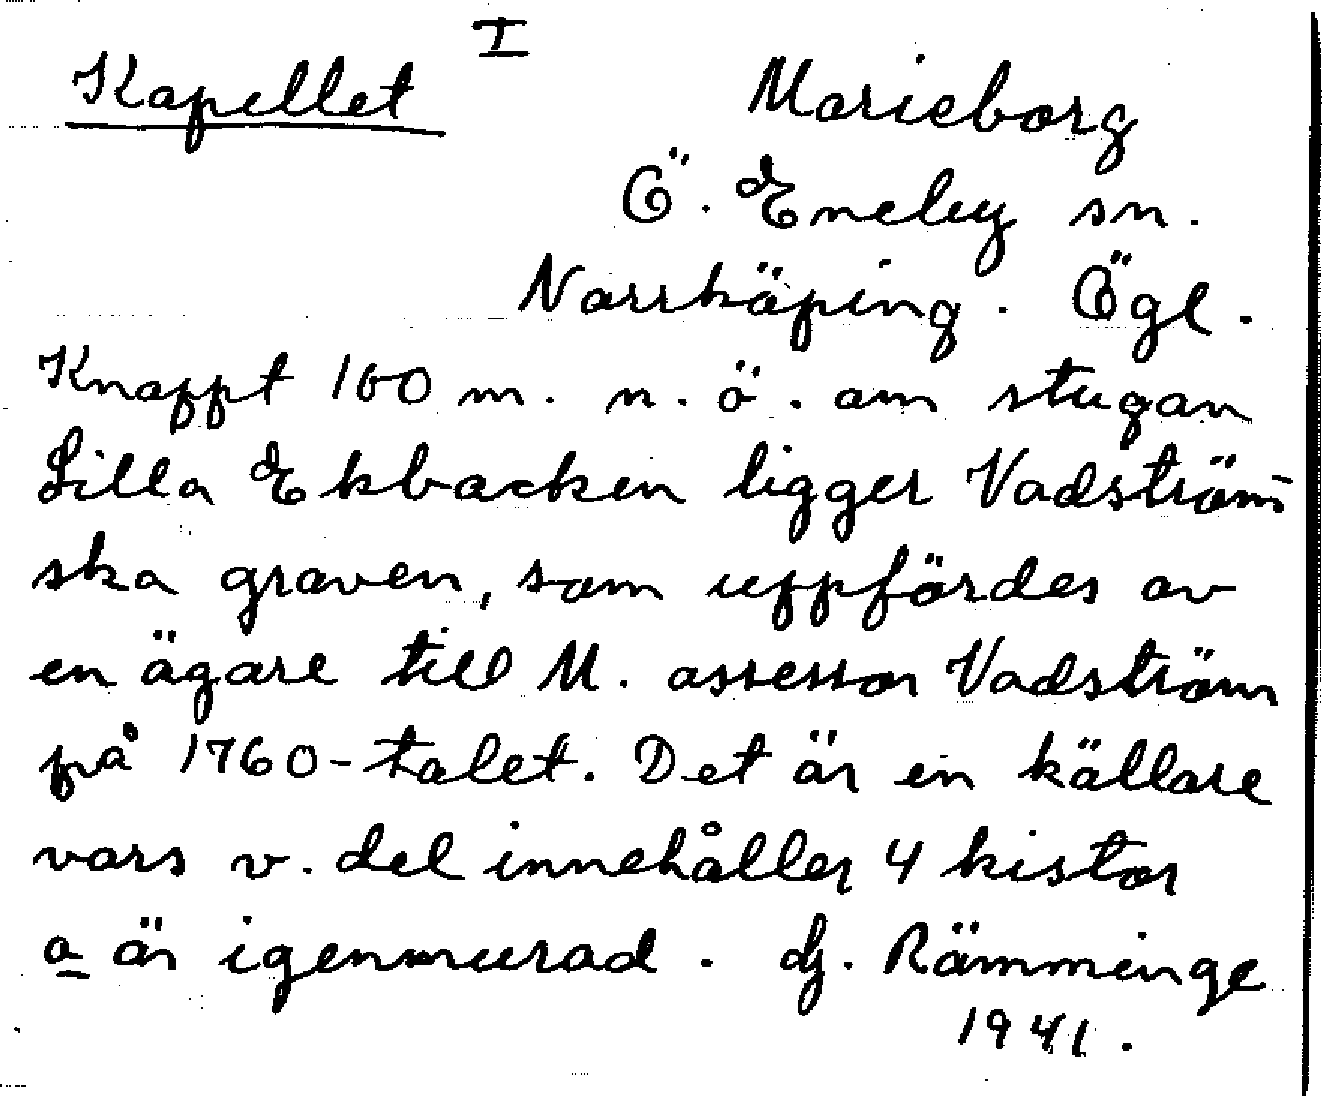 I
Kapellet
Marieborg
Ö. Eneby sn.
Norrköping. Ögl.
Knappt 100 m. n. ö. om stugan
Lilla Ekbacken ligger Vadström-
ska graven, som uppfördes av
en ägare till M. assessor Vadström
på 1760-talet. Det är en källare
vars v. del innehåller 4 kistor
o är igenmurad. Rämminge
1941.